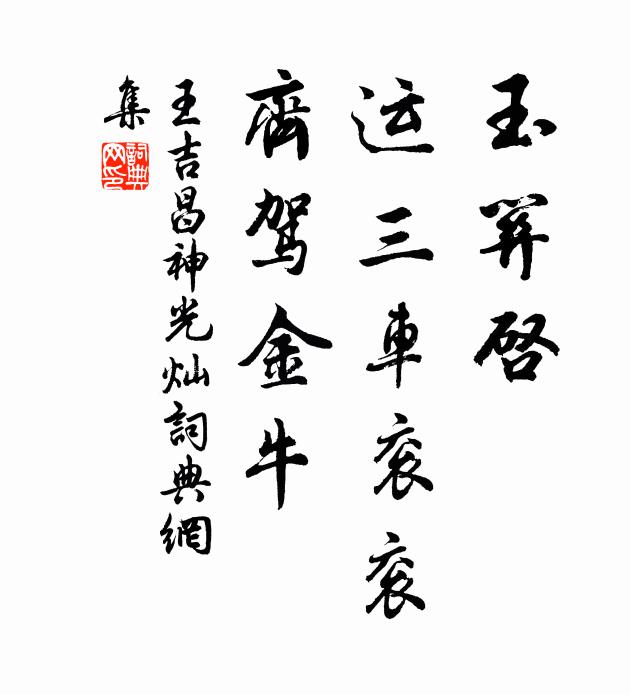 玉笄啓
运三車衮衮
齊驾金牛
王吉昌神光灿詞典網
集
詞典网印